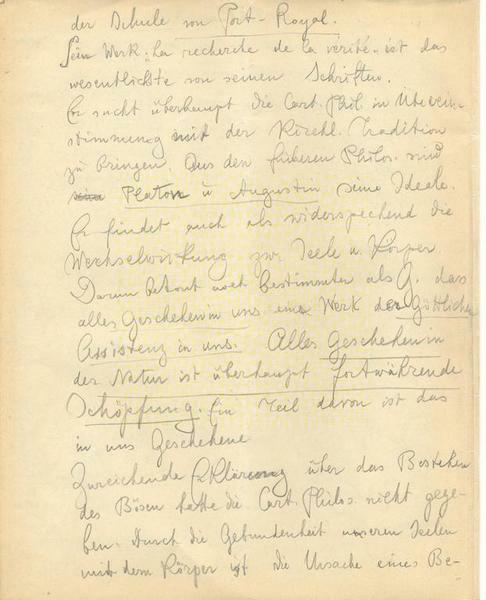 der Schule von Port-Royal.
Sein Werk „La recherche de la verité" ist das
wesentlichste von seinen Schriften.
Er sucht überhaupt die Cart. Phil. in Überein-
stimmung mit der Kirchl. Tradition
zu bringen. Aus den früheren Philos. sind
Platon u Augustin seine Ideale.
Er findet auch als widersprechend die
Wechselwirkung zw. Seele u. Körper.
Darum betont noch bestimmter als G. dass
alles Geschehen in uns eine Werk der göttlichen
Assistenz in uns. Alles Geschehen in
der Natur ist überhaupt fortwährende
Schöpfung. Ein Teil davon ist das
in uns Geschehene
Zureichende Erklärung über das Bestehen
des Bösen hatte die Cart. Philos. nicht gege-
ben. Durch die Gebundenheit unseren Seelen
mit dem Körper ist die Ursache eines Be-